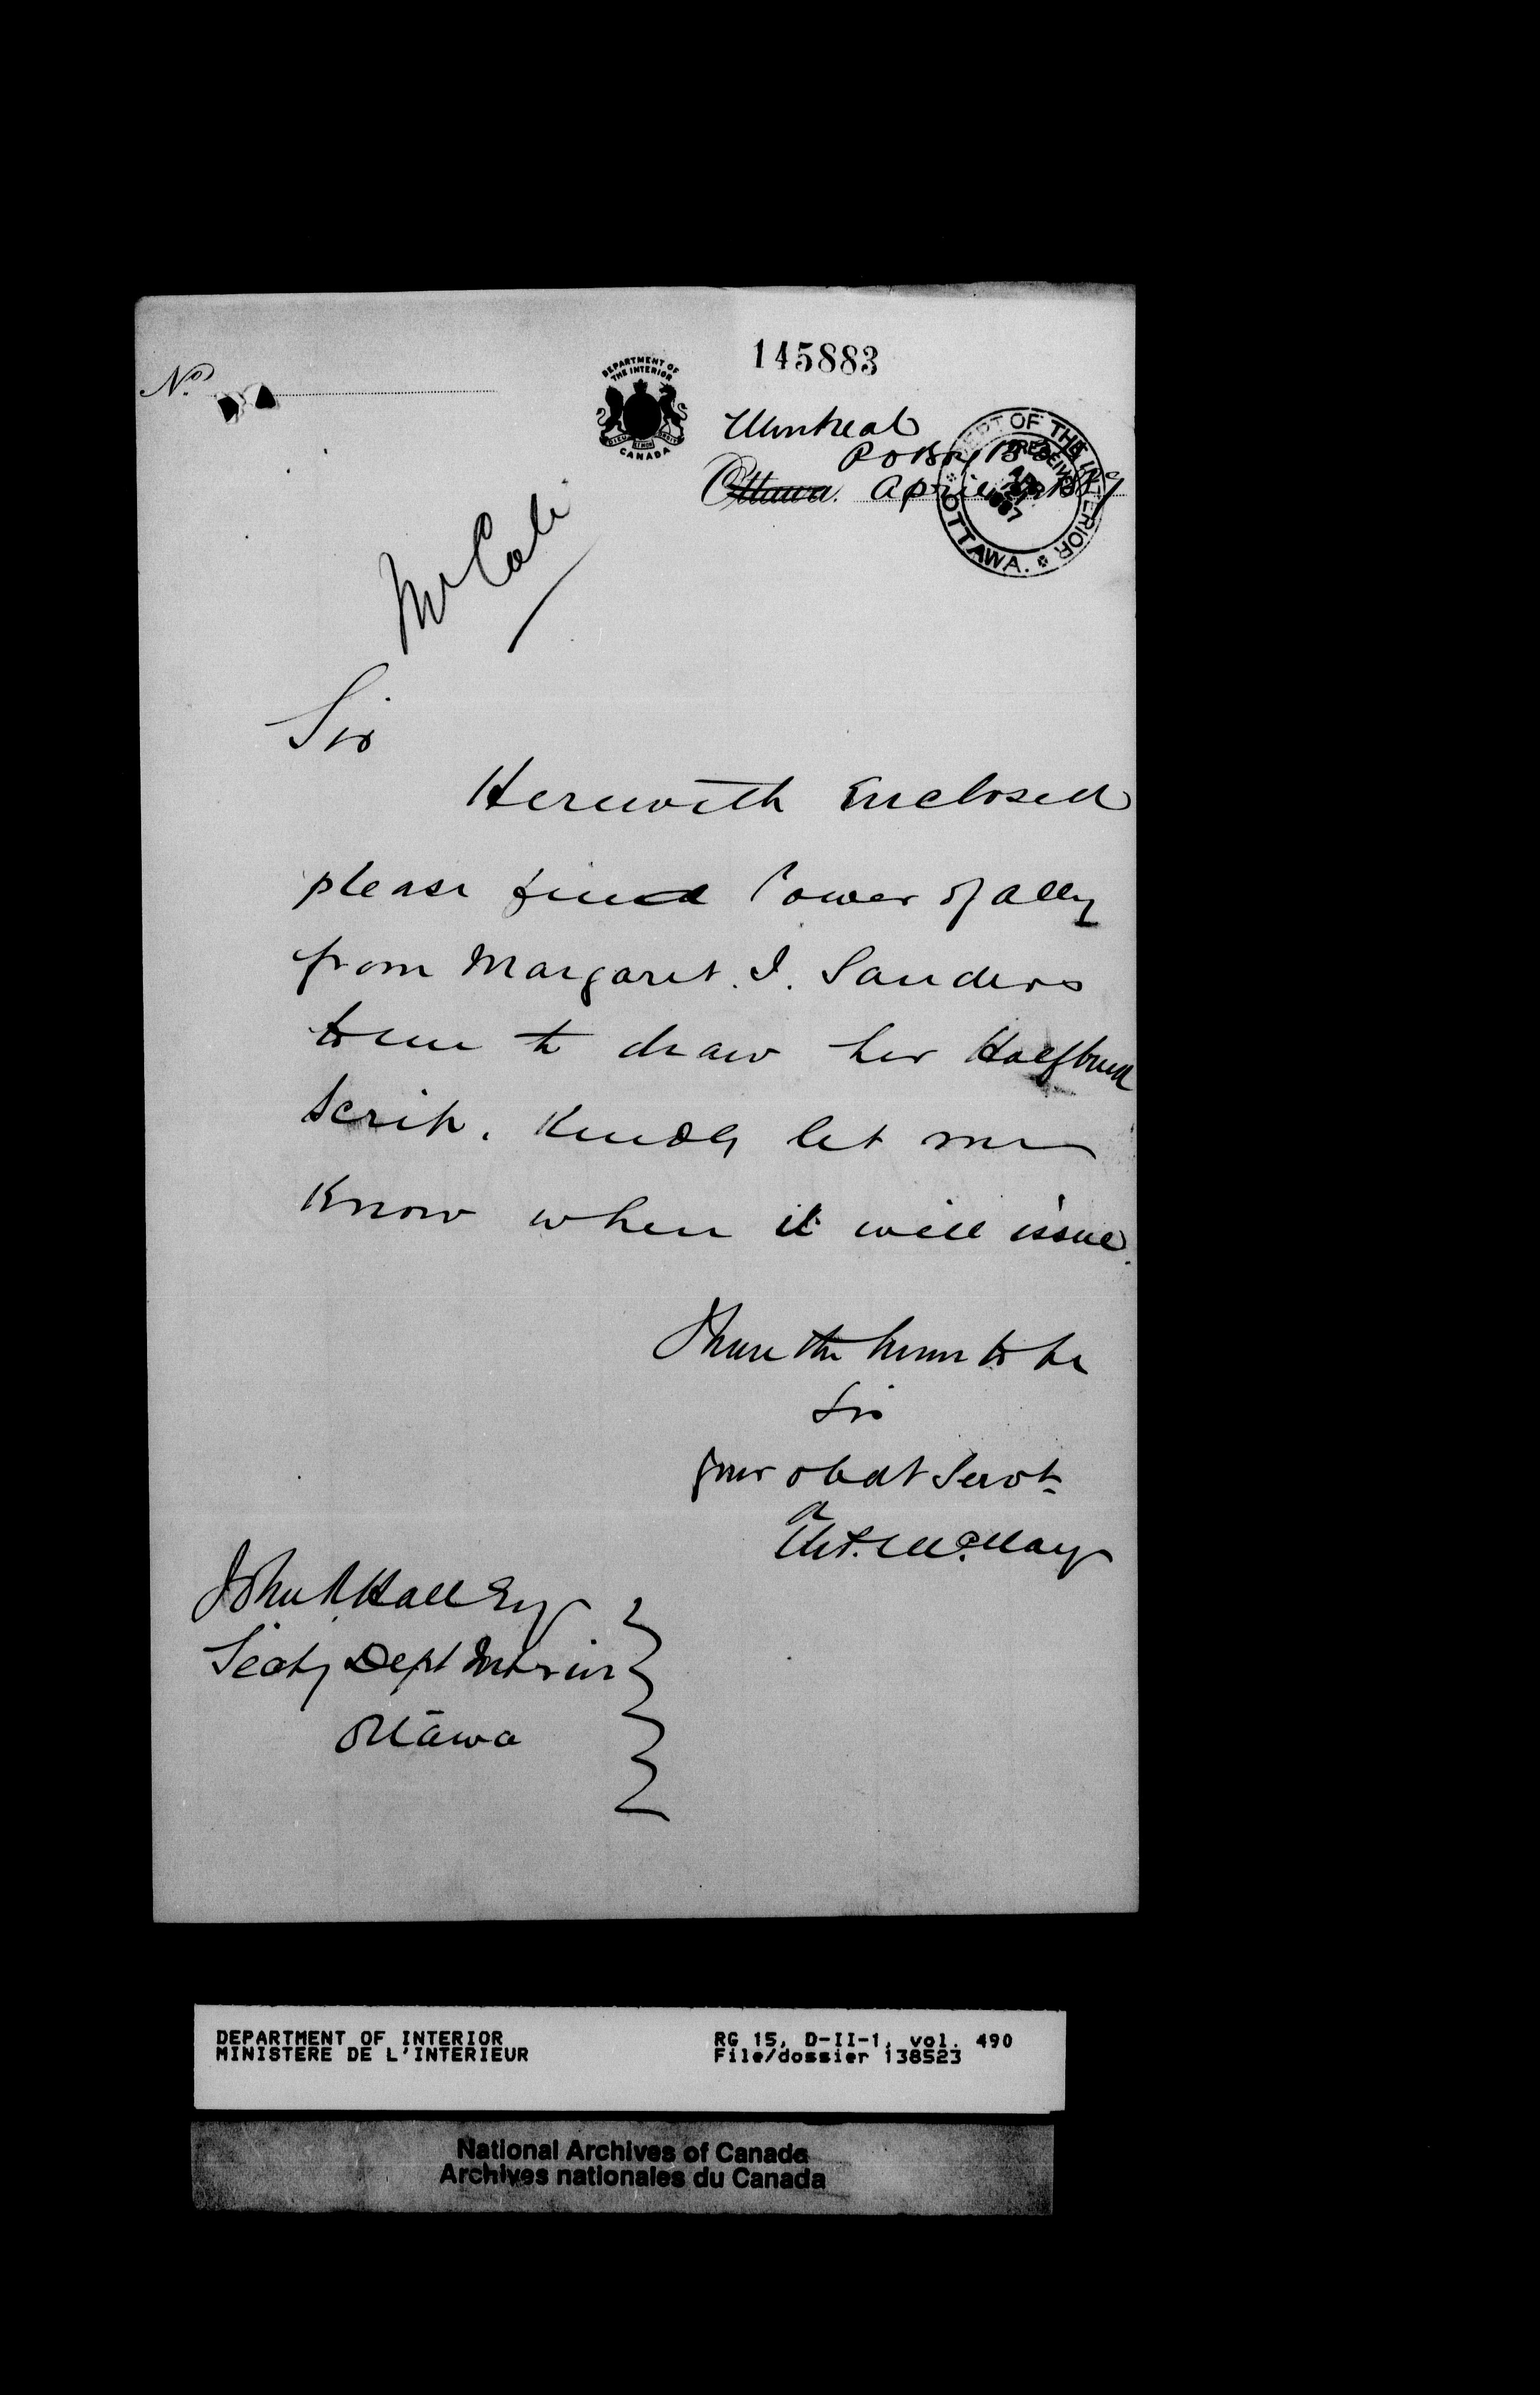 145883
No.
DEPARTMENT OF
THE INTERIOR
CANADA
Montreal
P O Box
Ottawa. April
DEPT OF THE INTERIOR
RECEIVED
1887
OTTAWA.
Mr Cole
Sir
Herewith Enclosed
please find Power of Atty
from Margaret. I. Sanders
to me to draw her Halfbreed
Scrip. Kindly let me
Know when it will issue.
I have the honor to be
Sir
your obdt Servt
McKay
John R Hall Esq
Secty Dept Interior
Ottawa
DEPARTMENT OF INTERIOR
MINISTERE DE L'INTERIEUR
RG 15, D-II-1, vol. 490
File/dossier 138523
National Archives of Canada
Archives nationales du Canada